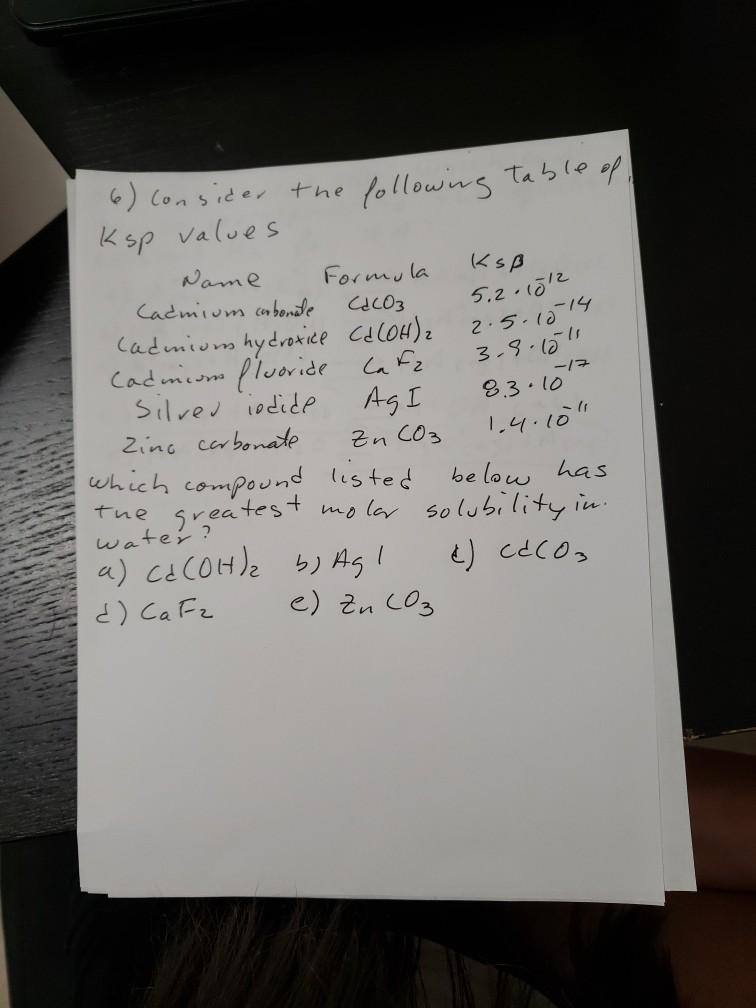 6) Consider the following table of
Ksp values
Name Formula Ksp
Cadmium carbonate CdCO3 5.2 · 10^-12
Cadmium hydroxide Cd(OH)2 2.5 · 10^-14
Cadmium fluoride CaF2 3.9 · 10^-11
Silver iodide AgI 8.3 · 10^-17
Zinc carbonate ZnCO3 1.4 · 10^-11
which compound listed below has
the greatest molar solubility in
water?
a) Cd(OH)2 b) AgI c) CdCO3
d) CaF2 e) ZnCO3